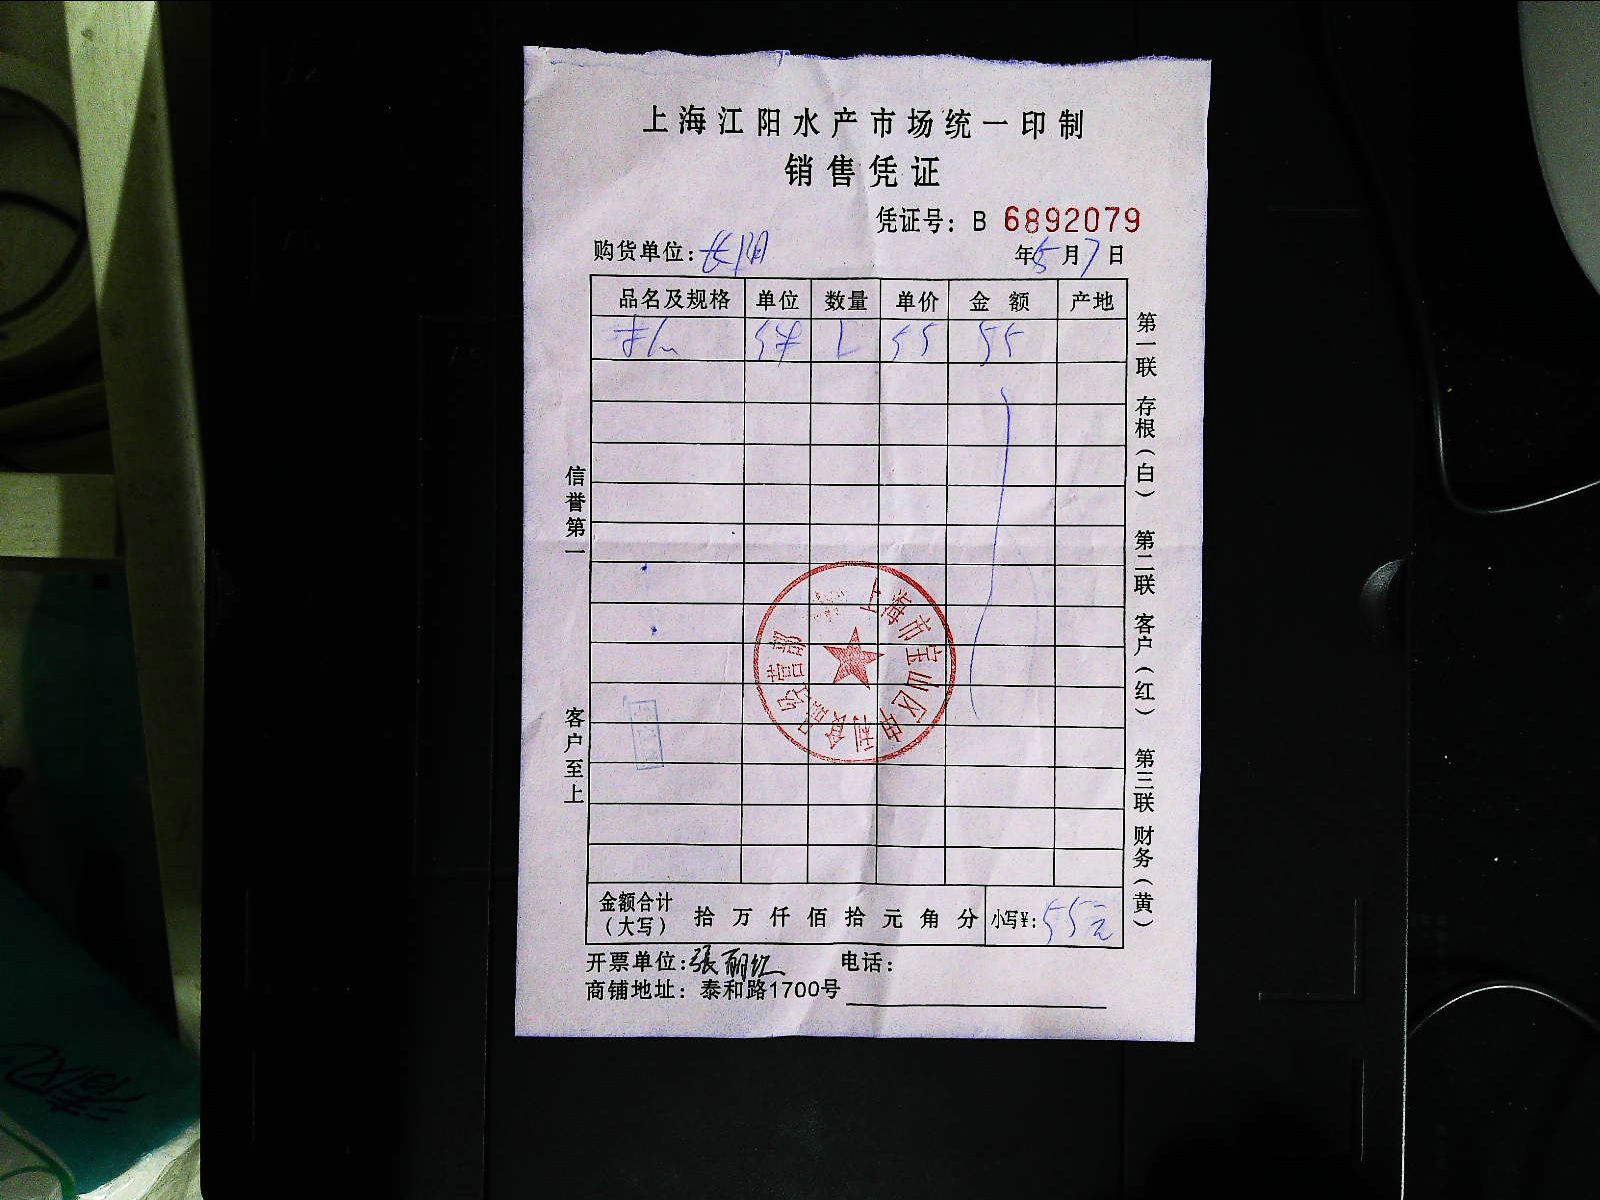 上海江阳水产市场统一印制
销售凭证
凭证号：B 6892079
购货单位：长阳
年5月7日
品名及规格 单位 数量 单价 金额 产地
55 55
信誉第一
客户至上
第一联 存根（白） 第二联 客户（红） 第三联 财务（黄）
上海市宝山区申利食品经营部
金额合计（大写） 拾万仟佰拾元角分 小写¥：55元
开票单位：張丽红 电话：
商铺地址：泰和路1700号